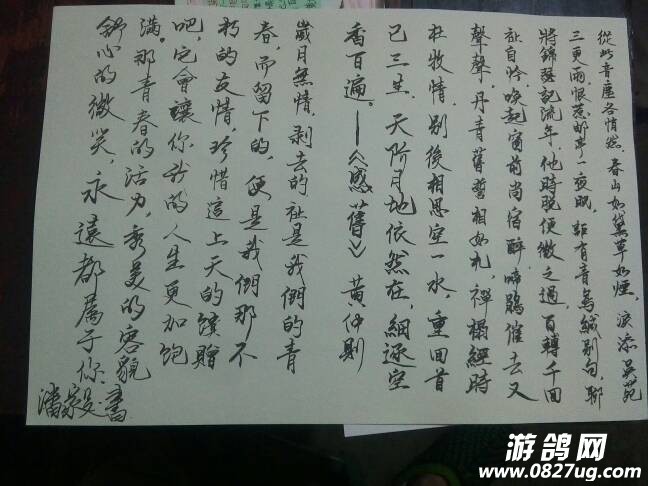 從此音塵各悄然,春山如黛草如煙,淚添吳苑
三更雨,恨惹郵亭一夜眠,詎有青鳥緘別句,聊
將錦瑟記流年,他時脫便微之過,百轉千回
祉自怜,喚起窗前尚宿醉,啼鵑催去又
聲聲,丹青舊誓相如札,禪榻經時
杜牧情,別後相思空一水,重回首
已三生,天阶月地依然在,細逐空
香百遍。——《感舊》黃仲則
歲月無情,剥去的祉是我們的青
春,而留下的,便是我們那不
朽的友情,珍惜這上天的饋贈
吧,它會讓你我的人生更加飽
滿。那青春的活力,秀美的容貌
舒心的微笑,永遠都屬于你
潘 書
游鸽网
www.0827ug.com